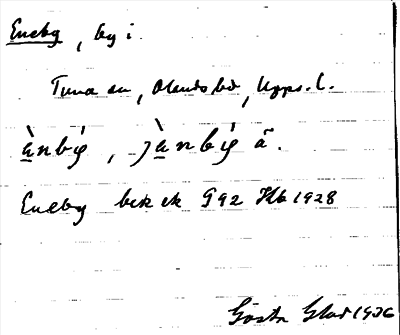 Eneby, by i
Tuna sn, Olands hd, Upps. l.
ànbý, jànbý ã.
Eneby bek ek G92 Kb 1928
Gösta Glad 1936